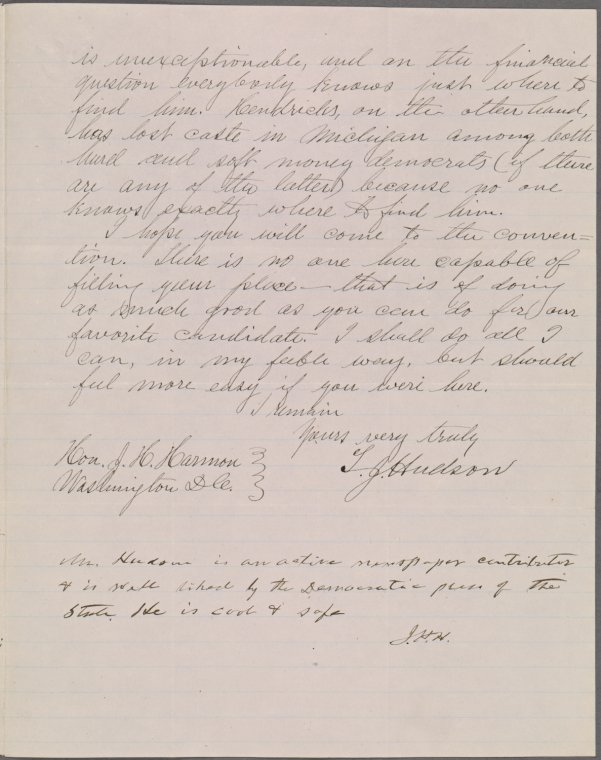 is unexceptionable, and on the financial
question everybody knows just where to
find him. Hendricks, on the other hand,
has lost caste in Michigan among both
hard and soft money democrats (if there
are any of the latter) because no one
knows exactly where to find him.
I hope you will come to the conven=
tion. There is no one here capable of
filling your place - that is of doing
as much good as you can do for our
favorite candidate. I shall do all I
can, in my feeble way, but should
feel more easy if you were here.
I remain
Yours very truly
T. J. Hudson
Hon. J. H. Harmon
Washington D.C.
Mr. Hudson is an active newspaper contributor
& is well liked by the Democratic press of the
State. He is cool & safe
J. H. H.